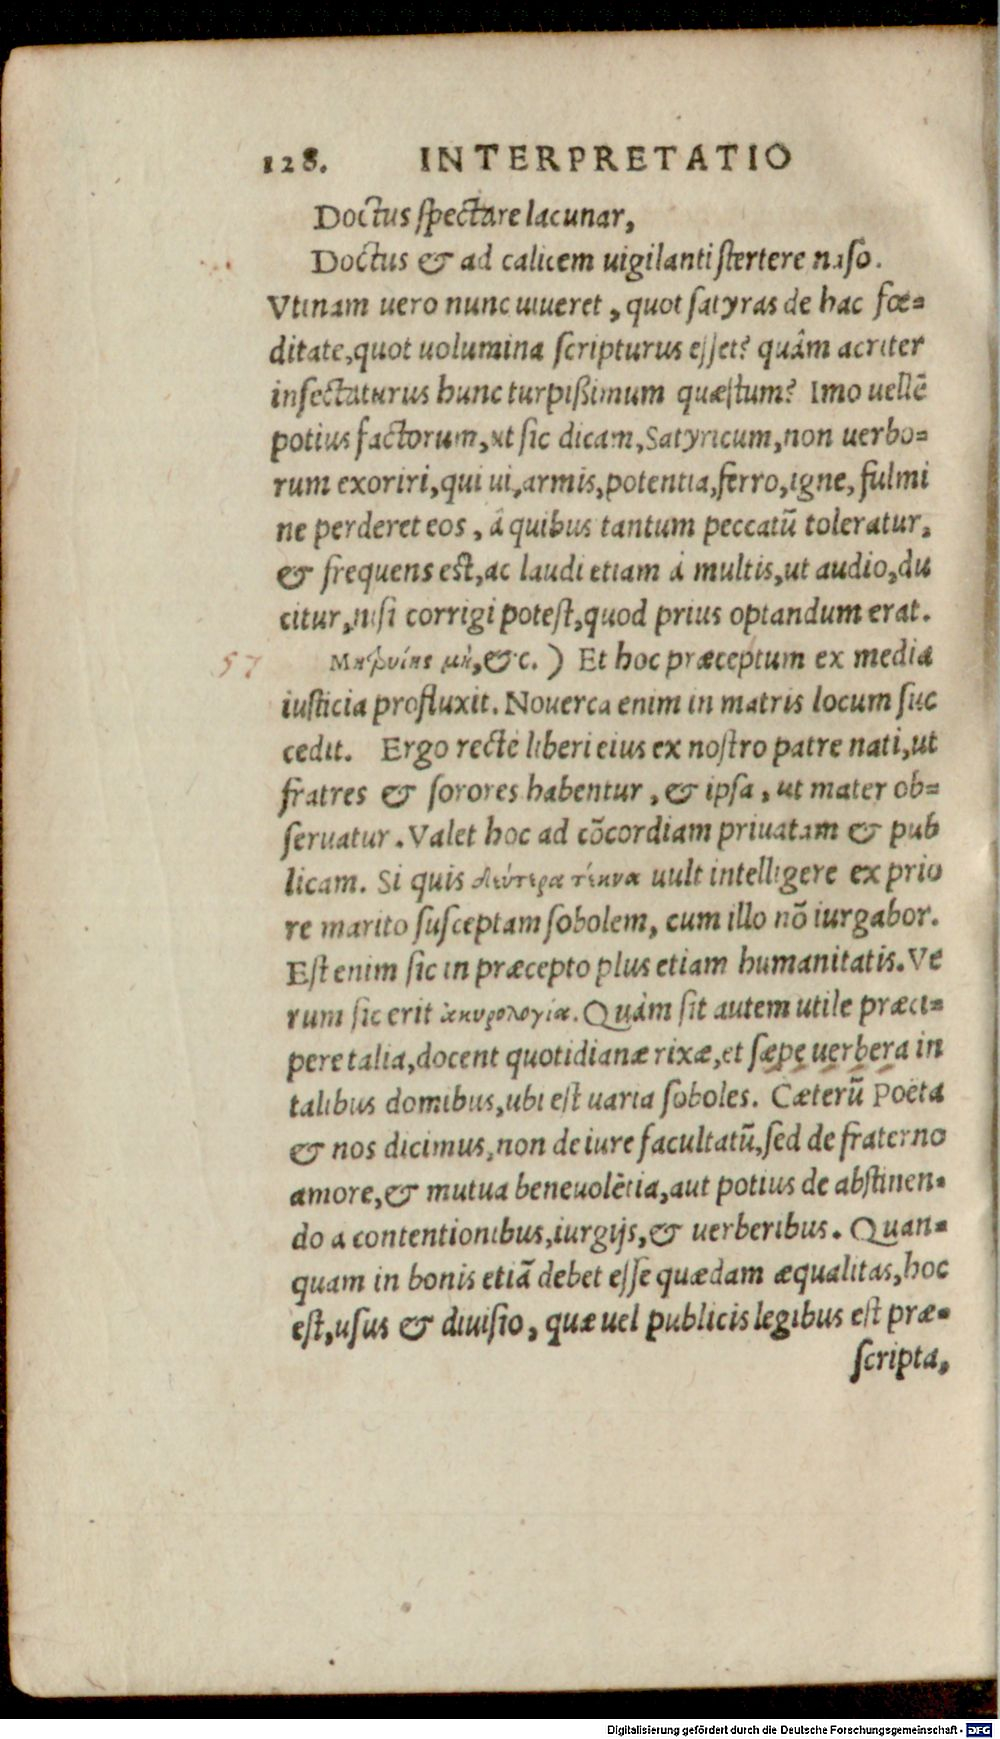 128. INTERPRETATIO
Doctus spectare lacunar,
Doctus & ad calicem uigilanti stertere naso.
Vtinam uero nunc uiueret, quot satyras de hac fœ=
ditate, quot uolumina scripturus esset? quâm acriter
insectaturus hunc turpißimum quæstum? Imo uellē
potius factorum, ut sic dicam, Satyricum, non uerbo=
rum exoriri, qui ui, armis, potentia, ferro, igne, fulmi
ne perderet eos, â quibus tantum peccatū toleratur,
& frequens est, ac laudi etiam á multis, ut audio, du
citur, nisi corrigi potest, quod prius optandum erat.
57 Μητρυίης μὴ, &c.) Et hoc præceptum ex media
iusticia profluxit. Nouerca enim in matris locum suc
cedit. Ergo recte liberi eius ex nostro patre nati, ut
fratres & sorores habentur, & ipsa, ut mater ob=
seruatur. Valet hoc ad cōcordiam priuatam & pub
licam. Si quis δεύτερα τέκνα uult intelligere ex prio
re marito susceptam sobolem, cum illo nō iurgabor.
Est enim sic in præcepto plus etiam humanitatis. Ve
rum sic erit ἀκυρολογία. Quàm sit autem utile præci=
pere talia, docent quotidianæ rixæ, et sæpe uerbera in
talibus domibus, ubi est uaria soboles. Cæterū Poëta
& nos dicimus, non de iure facultatū, sed de fraterno
amore, & mutua beneuolētia, aut potius de abstinen=
do a contentionibus, iurgijs, & uerberibus. Quan=
quam in bonis etiā debet esse quædam æqualitas, hoc
est, usus & diuisio, quæ uel publicis legibus est præ=
scripta,
Digitalisierung gefördert durch die Deutsche Forschungsgemeinschaft - DFG